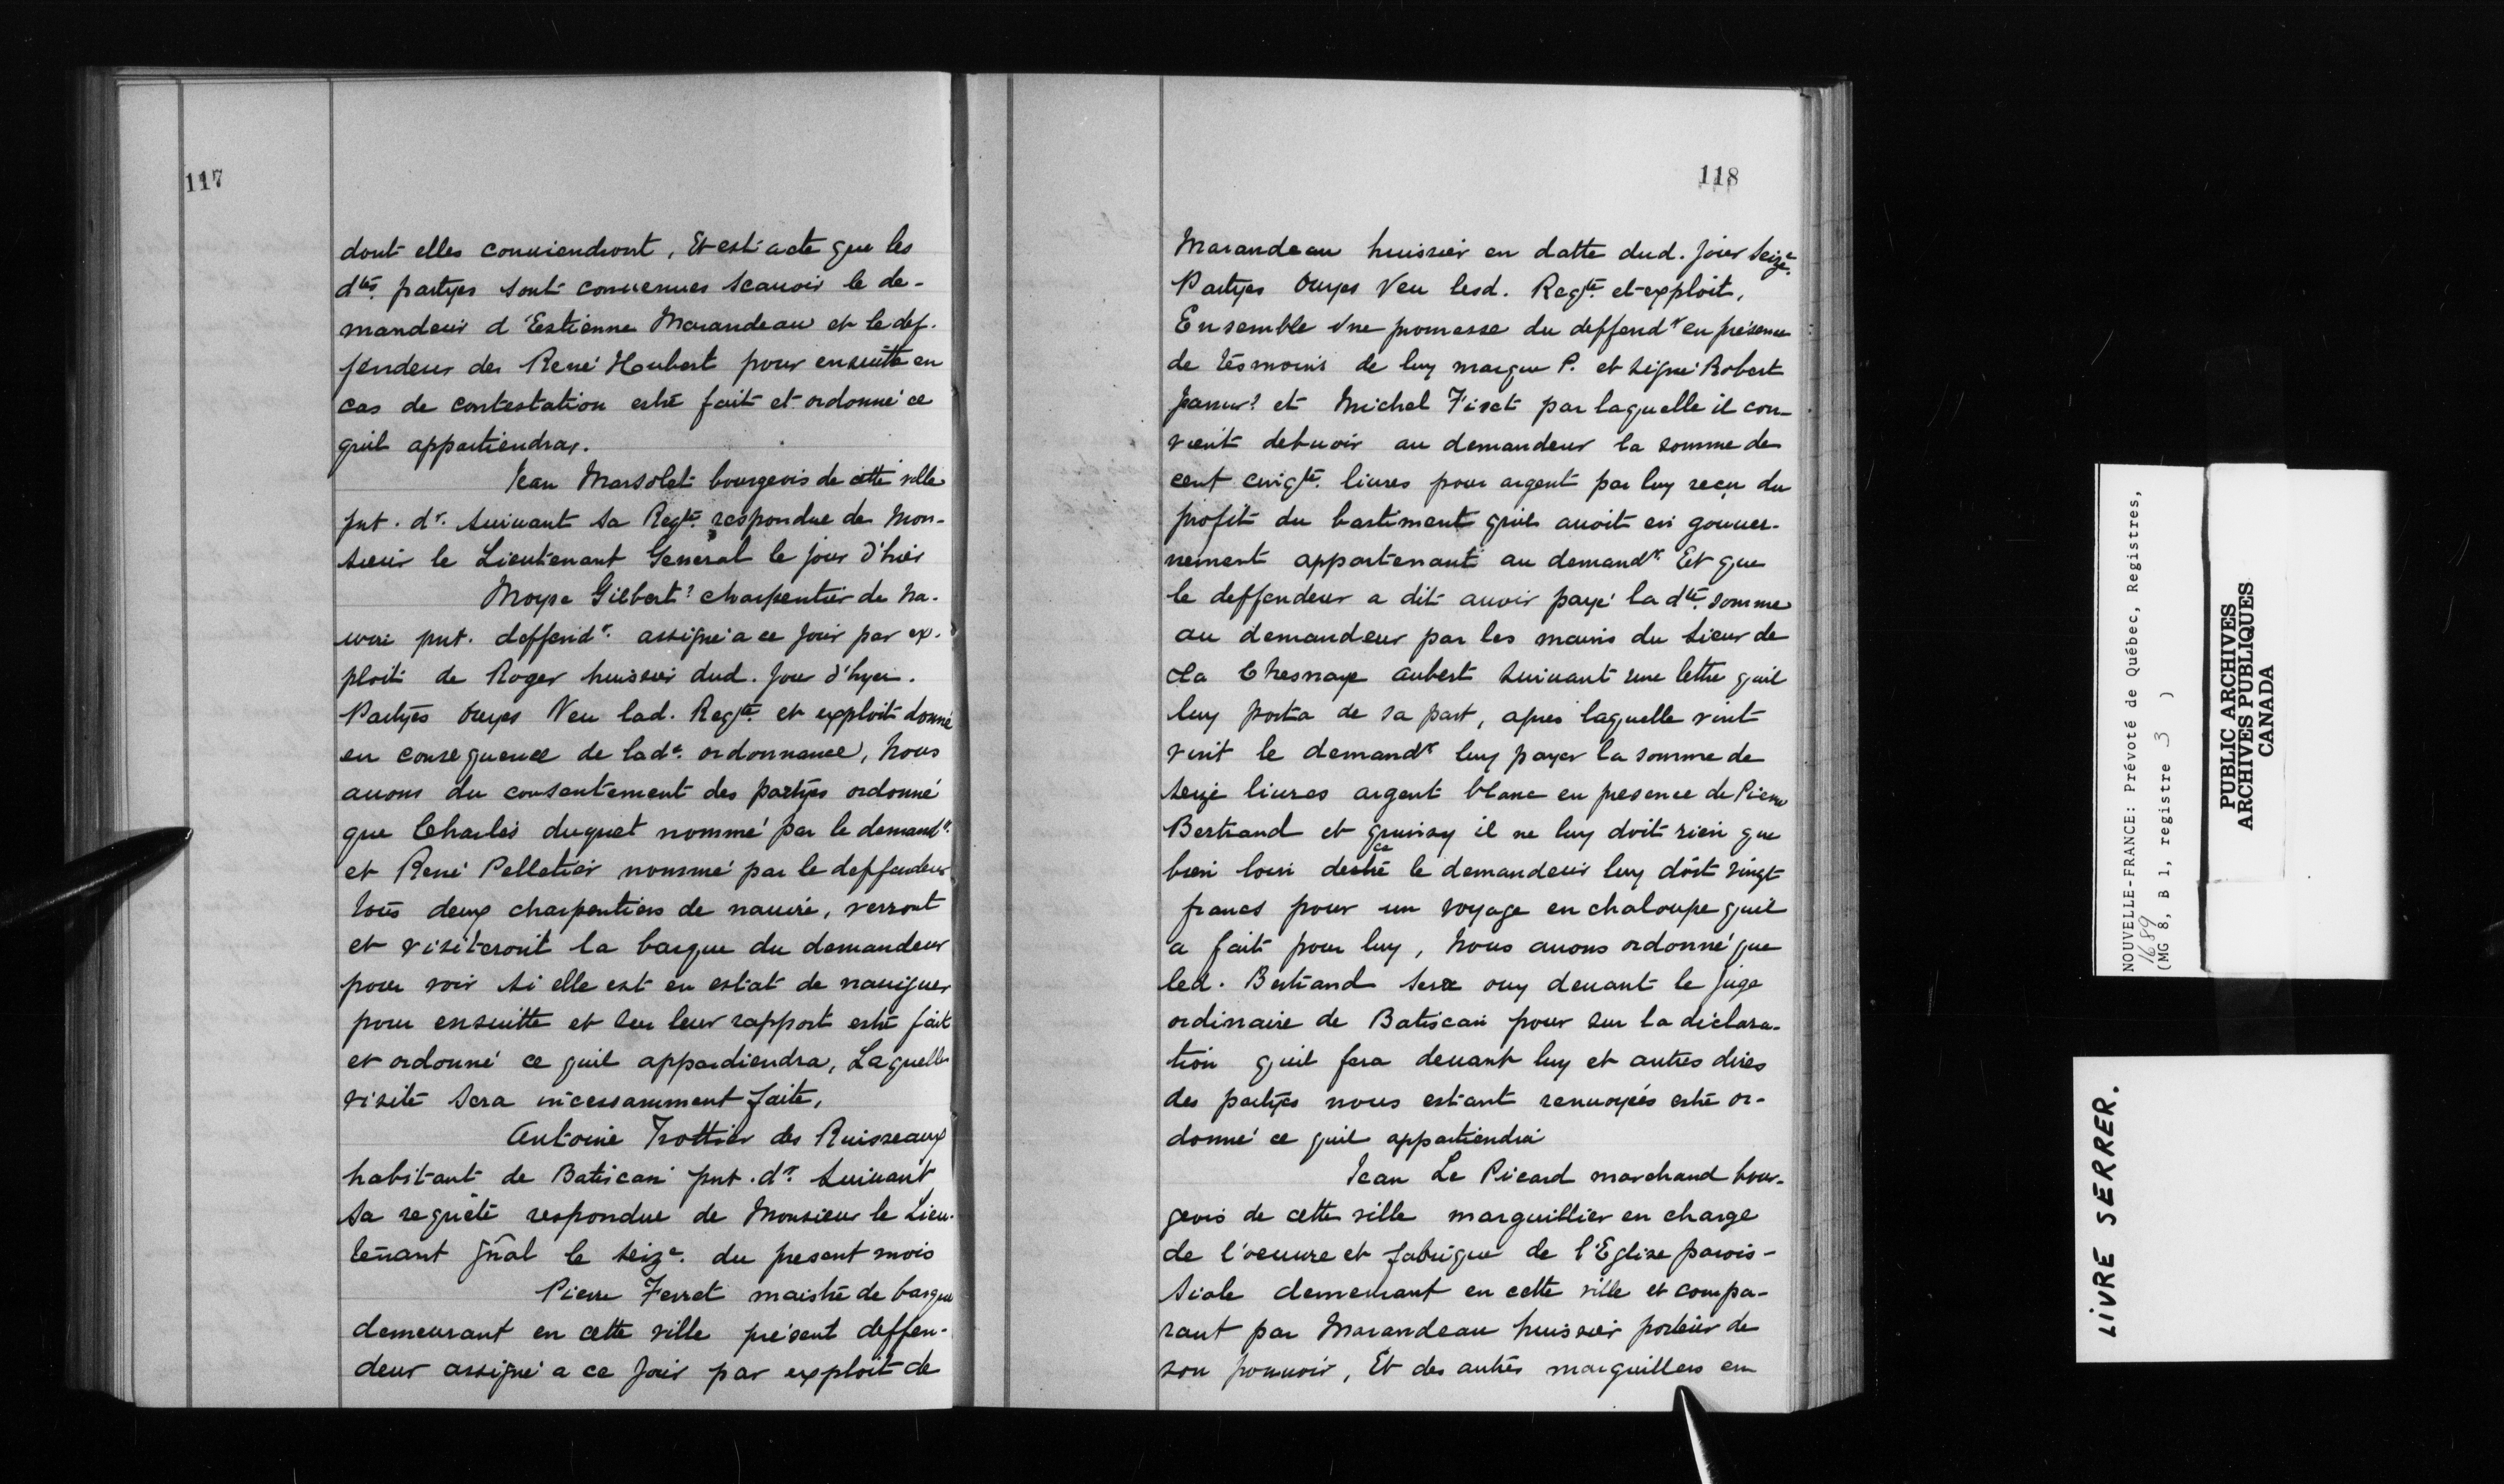 117
dont elles conuiendront, Et est acte que les
dtes. partyes sont conuenues scauoir le de-
mandeur d'Estienne Marandeau et le def-
fendeur de René Houbert pour ensuitte en
cas de contestation estre fait et ordonné ce
quil appartiendra.
Jean Marsolet bourgeois de cette ville
pnt. dr. suiuant sa Reqte. respondue de Mon-
sieur le Lieutenant General le jour d'hier
Moyse Gilbert? charpentier de na-
uire pnt. deffendr. assigné a ce jour par ex-
ploit de Roger huissier dud. jour d'hyer.
Partyes ouyes Veu lad. Reqte. et exploit donné
en consequence de lade. ordonnance, Nous
auons du consentement des partyes ordonné
que Charles duquet nommé par le demandr.
et René Pelletier nommé par le deffendeur
tous deux charpentiers de nauire, verront
et visiteront la barque du demandeur
pour voir si elle est en estat de nauiguer
pour ensuitte et sur leur rapport estre fait
et ordonné ce quil appardiendra, Laquelle
visite sera incessamment faite,
Antoine Trottier des Ruisseaux
habitant de Batiscan pnt. dr. suiuant
sa requête respondue de Monsieur le Lieu-
tenant gñal le seize. du present mois
Pierre Ferret maistre de barque
demeurant en cette ville présent deffen-
deur assigné a ce jour par exploit de
118
Marandeau huissier en datte dud. jour seize.
Partyes Ouyes Veu lesd. Reqte. et exploit,
Ensemble vne promesse du deffendr en présence
de tésmoins de luy marque P. et signé Robert
Janur? et Michel Fiset par laquelle il con-
vient debuoir au demandeur la somme de
cent cinqte. liures pour argent par luy reçu du
profit du bastiment quil auoit en gouuer-
nement appartenant au demandr. Et que
le deffendeur a dit auoir payé la dte. somme
au demandeur par les mains du sieur de
La Chesnaye aubert suiuant une lettre quil
luy porta de sa part, apres laquelle vint
vint le demandr luy payer la somme de
seize liures argent blanc en presence de Pierre
Bertrand et quinsy il ne luy doit rien que
bien loin de ce estre le demandeur luy doit vingt
francs pour un voyage en chaloupe quil
a fait pour luy, Nous auons ordonné que
led. Bertrand sera ouy deuant le juge
ordinaire de Batiscan pour sur la déclara-
tion quil fera deuant luy et autres dires
des partyes nous estant renuoyées estre or-
donné ce quil appartiendra
Jean Le Picard marchand bour-
geois de cette ville marguillier en charge
de l'oeuure et fabrique de l'Eglise parois-
siale demeurant en cette ville et compa-
rant par Marandeau huissier porteur de
son pouuoir, Et des autres marguilliers en
NOUVELLE-FRANCE: Prévoté de Québec, Registres,
1689
(MG 8, B 1, registre 3 )
PUBLIC ARCHIVES
ARCHIVES PUBLIQUES
CANADA
LIVRE SERRER.